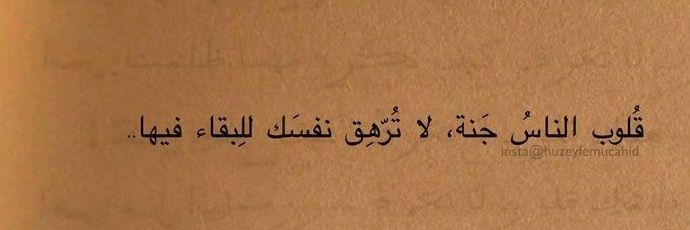 قُلوب الناسُ جَنة، لا تُرّهِق نفسَك للِبقاء فيها..
insta@huzeylemucahid